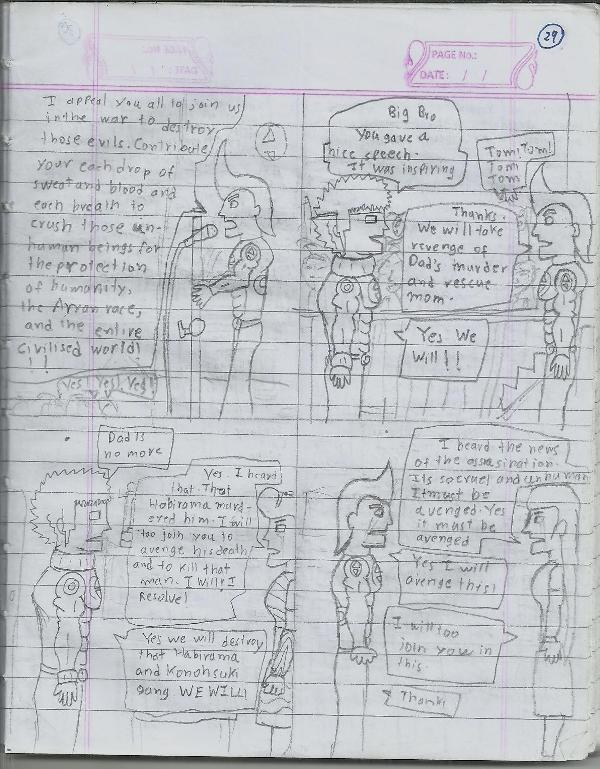 29
PAGE No.:
DATE: / /
I appeal you all to join us
in the war to destroy
those evils. Contribute
your each drop of
sweat and blood and
each breath to
crush those un-
human beings for
the protection
of humanity,
the Aryan race,
and the entire
civilised world!
!!
Yes! Yes! Yes!
Big Bro
You gave a
nice speech.
It was inspiring
Tom! Tom!
Tom
Tom
Thanks.
We will take
revenge of
Dad's murder
and rescue
mom.
Yes We
Will!!
Dad Is
no more
Yes I heard
that. That
Habirama murd-
ered him. I will
too join you to
avenge his death!
and to kill that
man. I Will! I
Resolve!
Yes we will destroy
that Habirama
and Konohsuki
gang WE WILL!
I heard the news
of the assasination.
Its so cruel and unhuman
It must be
avenged. Yes
it must be
avenged
Yes I will
avenge this!
I will too
join you in
this.
Thanks